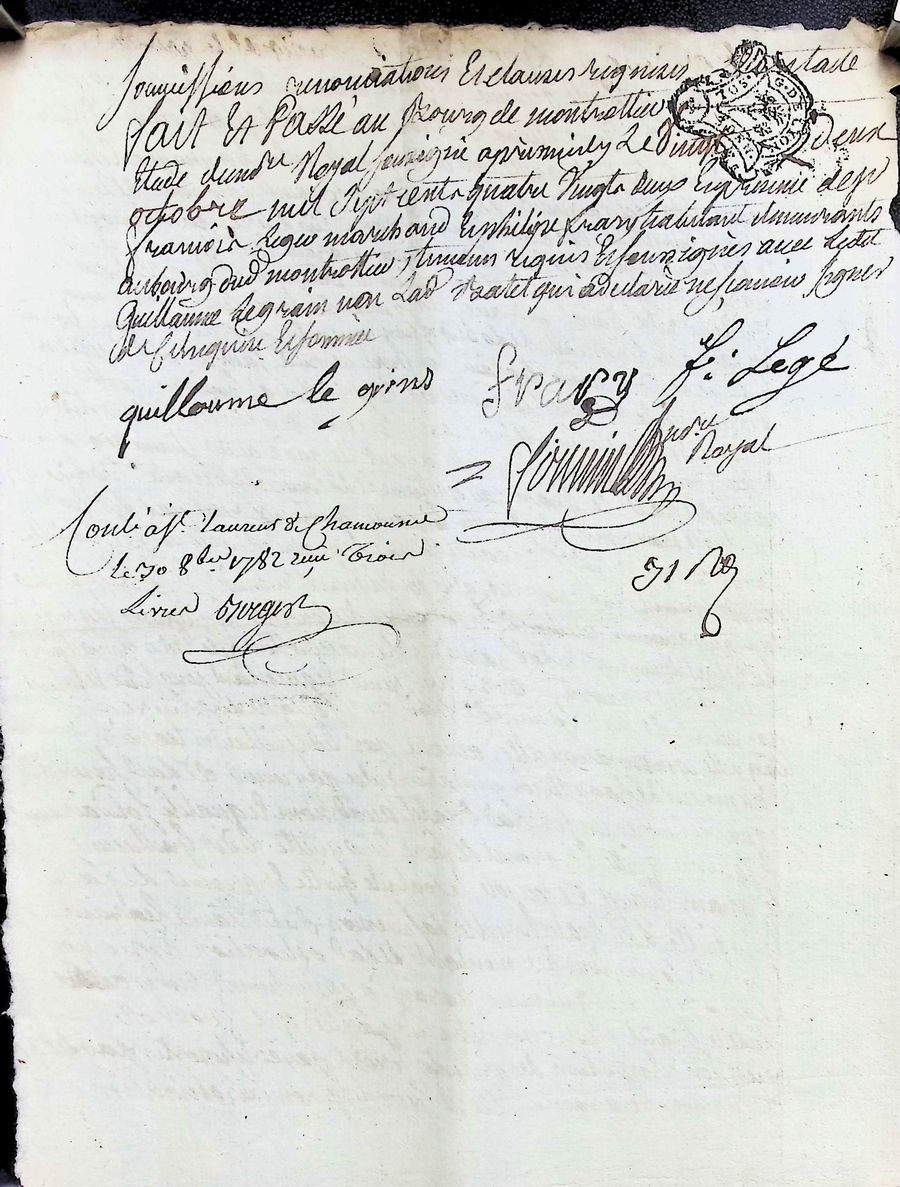 soumissions renonciations Et clauses requises
fait Et Passé au Bourg de montrottier
Etude dundre Royal soussigné apres midy Le Vingt deux
octobre mil Sept cents quatre Vingts deux En presence de sr
francois Legee marchand Et philipe frary habitant demeurants
au bourg dud montrottier temoins requis Et soussignés avec Ledit
Guillaume Legrain non Lad qui a declaré ne scavoir Signer
de ce Enquise Et sommée
guillaume le grins
frary f: Legé
ndre Royal
Conté à st laurent de Chamousset
le 30 8bre 1782 reçu Trois
Livres